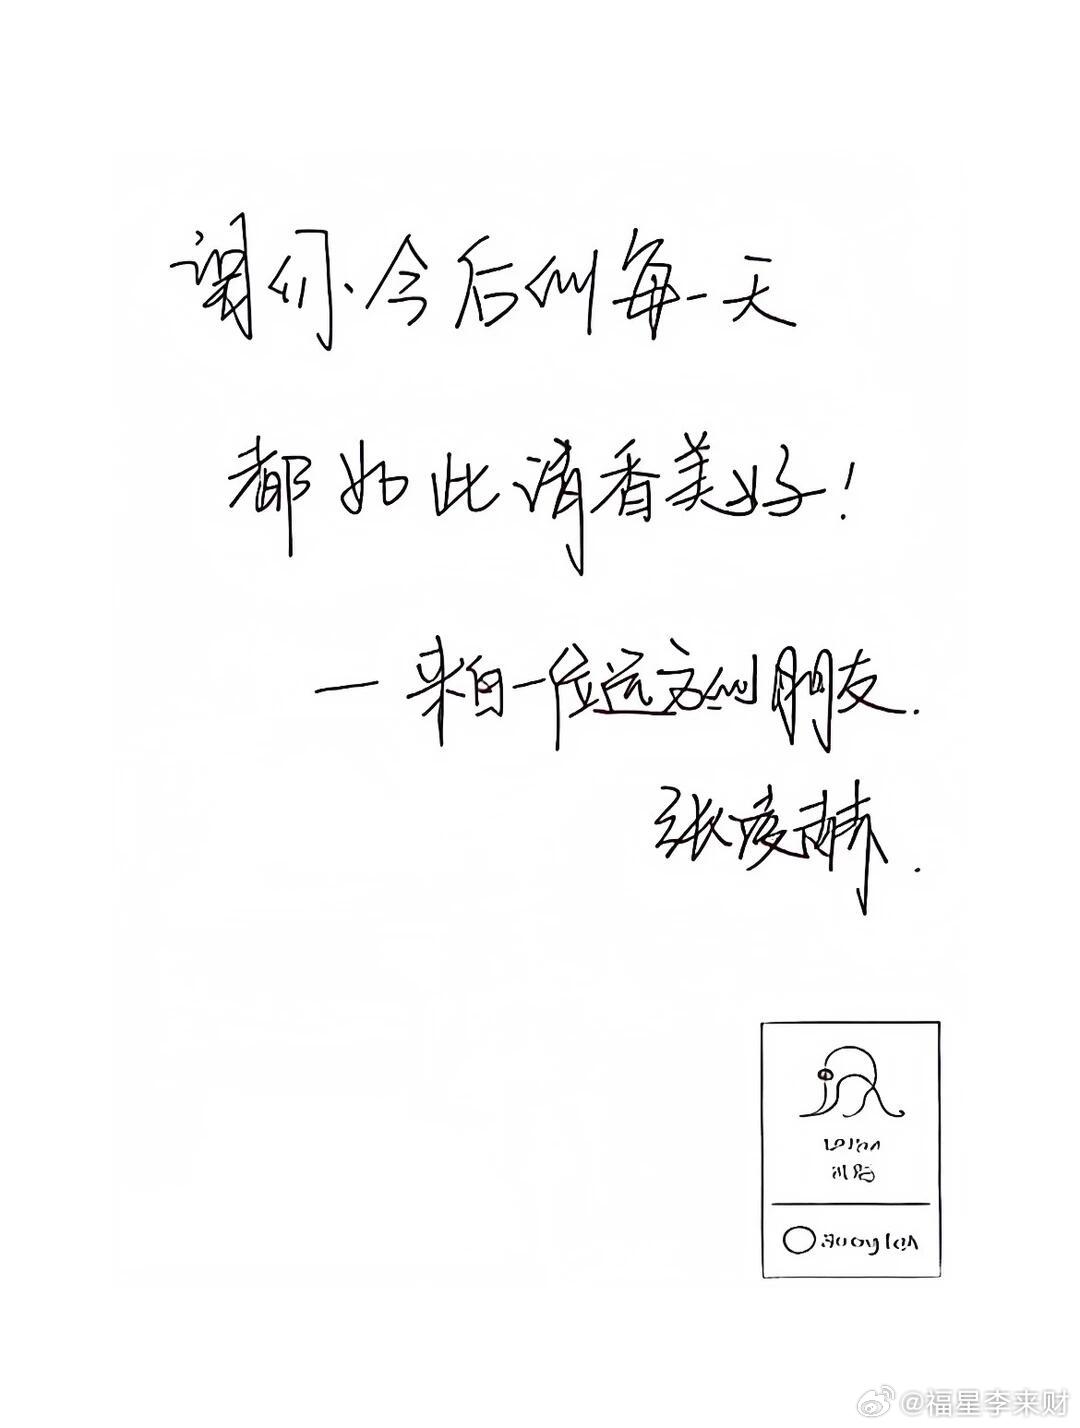 们·今后的每一天
都如此清香美好!
一来自一位远方的朋友.
张凌赫.
@福星李来财